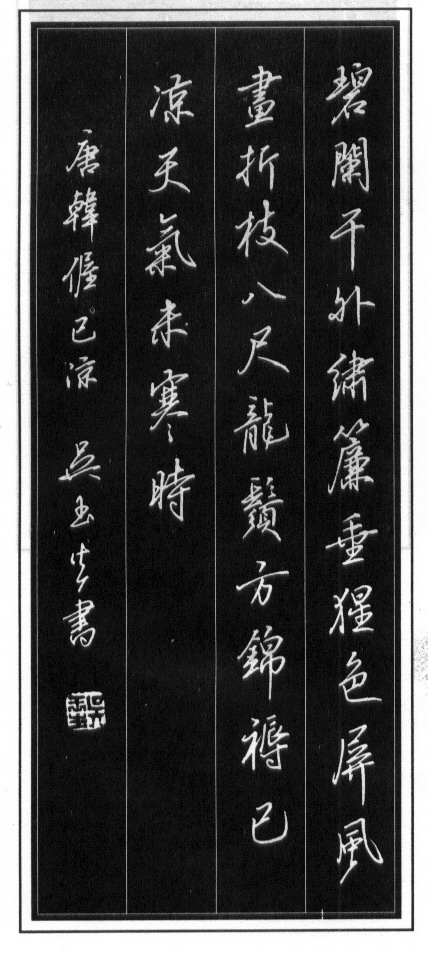 碧闌干外繡簾垂猩色屏風
畫折枝八尺龍鬚方錦褥已
涼天氣未寒時
唐韓偓已涼 吳玉生書